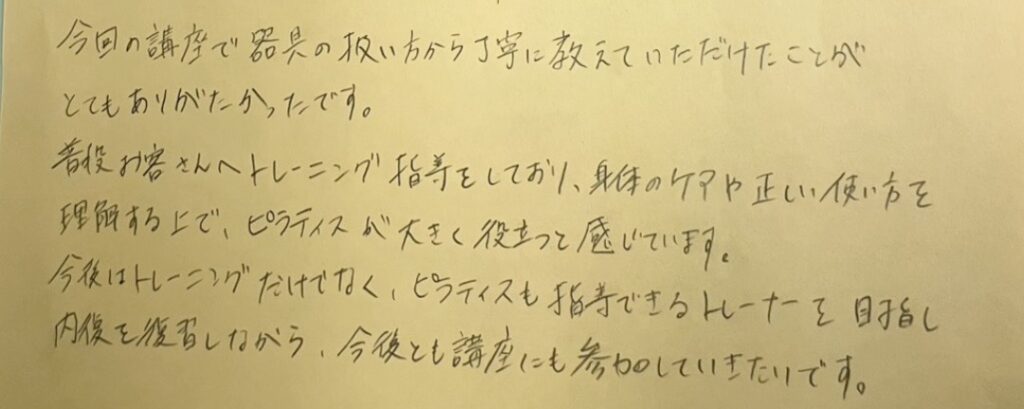 今回の講座で器具の扱い方から丁寧に教えていただけたことが
とてもありがたかったです。
普段お客さんへトレーニング指導をしており、身体のケアや正しい使い方を
理解する上で、ピラティスが大きく役立つと感じています。
今後はトレーニングだけでなく、ピラティスも指導できるトレーナーを目指し
内復を復習しながら、今後とも講座にも参加していきたいです。